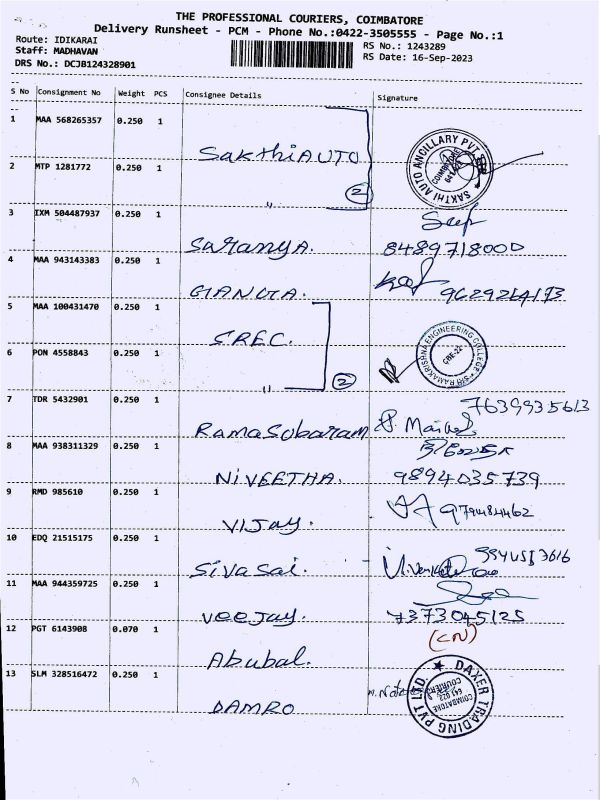 THE PROFESSIONAL COURIERS, COIMBATORE
Delivery Runsheet - PCM - Phone No.:0422-3505555 - Page No.:1
Route: IDIKARAI
RS No.: 1243289
Staff: MADHAVAN
RS Date: 16-Sep-2023
DRS No.: DCJB124328901
S No Consignment No Weight PCS Consignee Details Signature
1 MAA 568265357 0.250 1
SakthiAUTO
SAKTHI AUTO ANCILLARY PVT
2 MTP 1281772 0.250 1
" 2
3 IXM 504487937 0.250 1
Saranya. 8489718000
4 MAA 943143383 0.250 1
5 MAA 100431470 0.250 1
SREC.
SRI RAMAKRISHNA ENGINEERING COLLEGE
CBE-22
6 PON 4558843 0.250 1
" 2
7 TDR 5432901 0.250 1
7639935613
RamaSubaram
8 MAA 938311329 0.250 1
NiVEETHA. 9894035739
9 RMD 985610 0.250 1
Vijay.
10 EDQ 21515175 0.250 1
Sivasai.
11 MAA 944359725 0.250 1
Veejay. 7373045125
12 PGT 6143908 0.070 1
(CN)
Abubal.
13 SLM 328516472 0.250 1
DAMRO
DAXER TRADING PVT LTD.
COIMBATORE